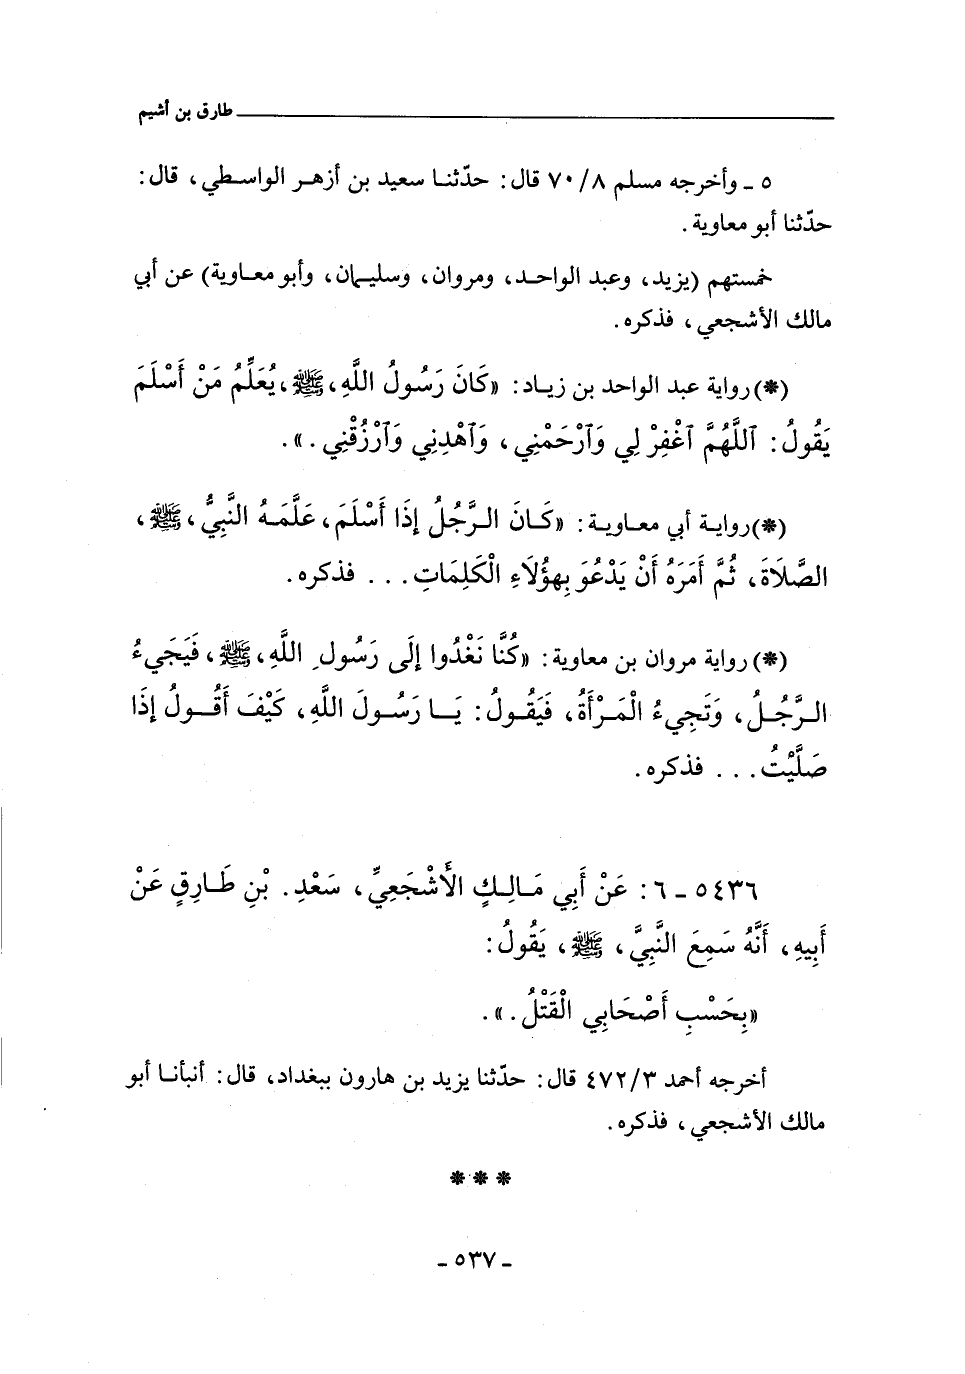 طارق بن أشيم
٥ ـ وأخرجه مسلم ٧٠/٨ قال: حدّثنا سعيد بن أزهر الواسطي، قال:
حدّثنا أبو معاوية.
خمستهم (يزيد، وعبد الواحد، ومروان، وسليمان، وأبو معاوية) عن أبي
مالك الأشجعي، فذكره.
(*) رواية عبد الواحد بن زياد: «كَانَ رَسُولُ اللَّهِ، ﷺ، يُعَلِّمُ مَنْ أَسْلَمَ
يَقُولُ: ٱللَّهُمَّ ٱغْفِرْ لِي وَٱرْحَمْنِي، وَٱهْدِنِي وَٱرْزُقْنِي.».
(*) رواية أبي معاوية: «كَانَ الرَّجُلُ إِذَا أَسْلَمَ، عَلَّمَهُ النَّبِيُّ، ﷺ،
الصَّلَاةَ، ثُمَّ أَمَرَهُ أَنْ يَدْعُوَ بِهؤُلَاءِ الْكَلِمَاتِ... فذكره.
(*) رواية مروان بن معاوية: «كُنَّا نَغْدُوا إِلَى رَسُولِ اللَّهِ، ﷺ، فَيَجِيءُ
الرَّجُلُ، وَتَجِيءُ الْمَرْأَةُ، فَيَقُولُ: يَا رَسُولَ اللَّهِ، كَيْفَ أَقُولُ إِذَا
صَلَّيْتُ... فذكره.
٥٤٣٦ ـ ٦: عَنْ أَبِي مَالِكٍ الأَشْجَعِيِّ، سَعْدِ. بْنِ طَارِقٍ عَنْ
أَبِيهِ، أَنَّهُ سَمِعَ النَّبِيَّ، ﷺ، يَقُولُ:
«بِحَسْبِ أَصْحَابِي الْقَتْلُ.».
أخرجه أحمد ٤٧٢/٣ قال: حدّثنا يزيد بن هارون ببغداد، قال: أنبأنا أبو
مالك الأشجعي، فذكره.
***
ـ ٥٣٧ ـ